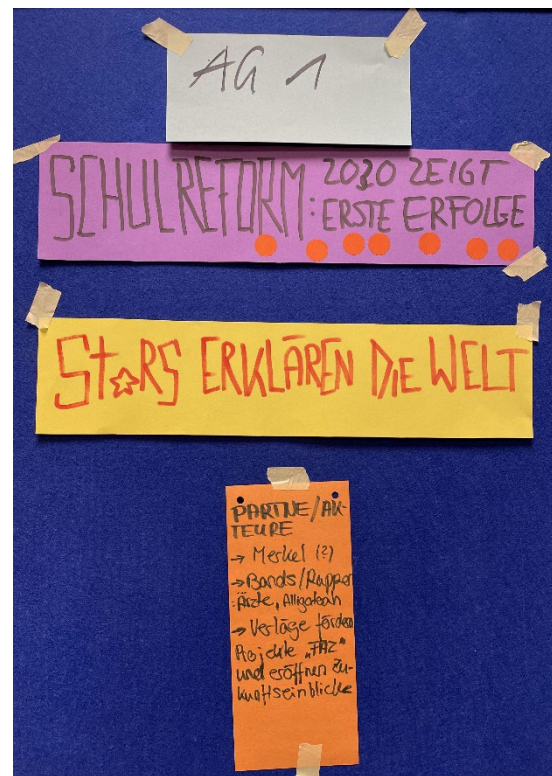 AG 1
SCHULREFORM: 2030 ZEIGT
ERSTE ERFOLGE
STARS ERKLÄREN DIE WELT
PARTNE/AK-
TEURE
→ Merkel (?)
→ Bands/Rapper
Ärzte, Alligatoah
→ Verlage fördern
Projekte „FAZ"
und eröffnen Zu-
kunftseinblicke